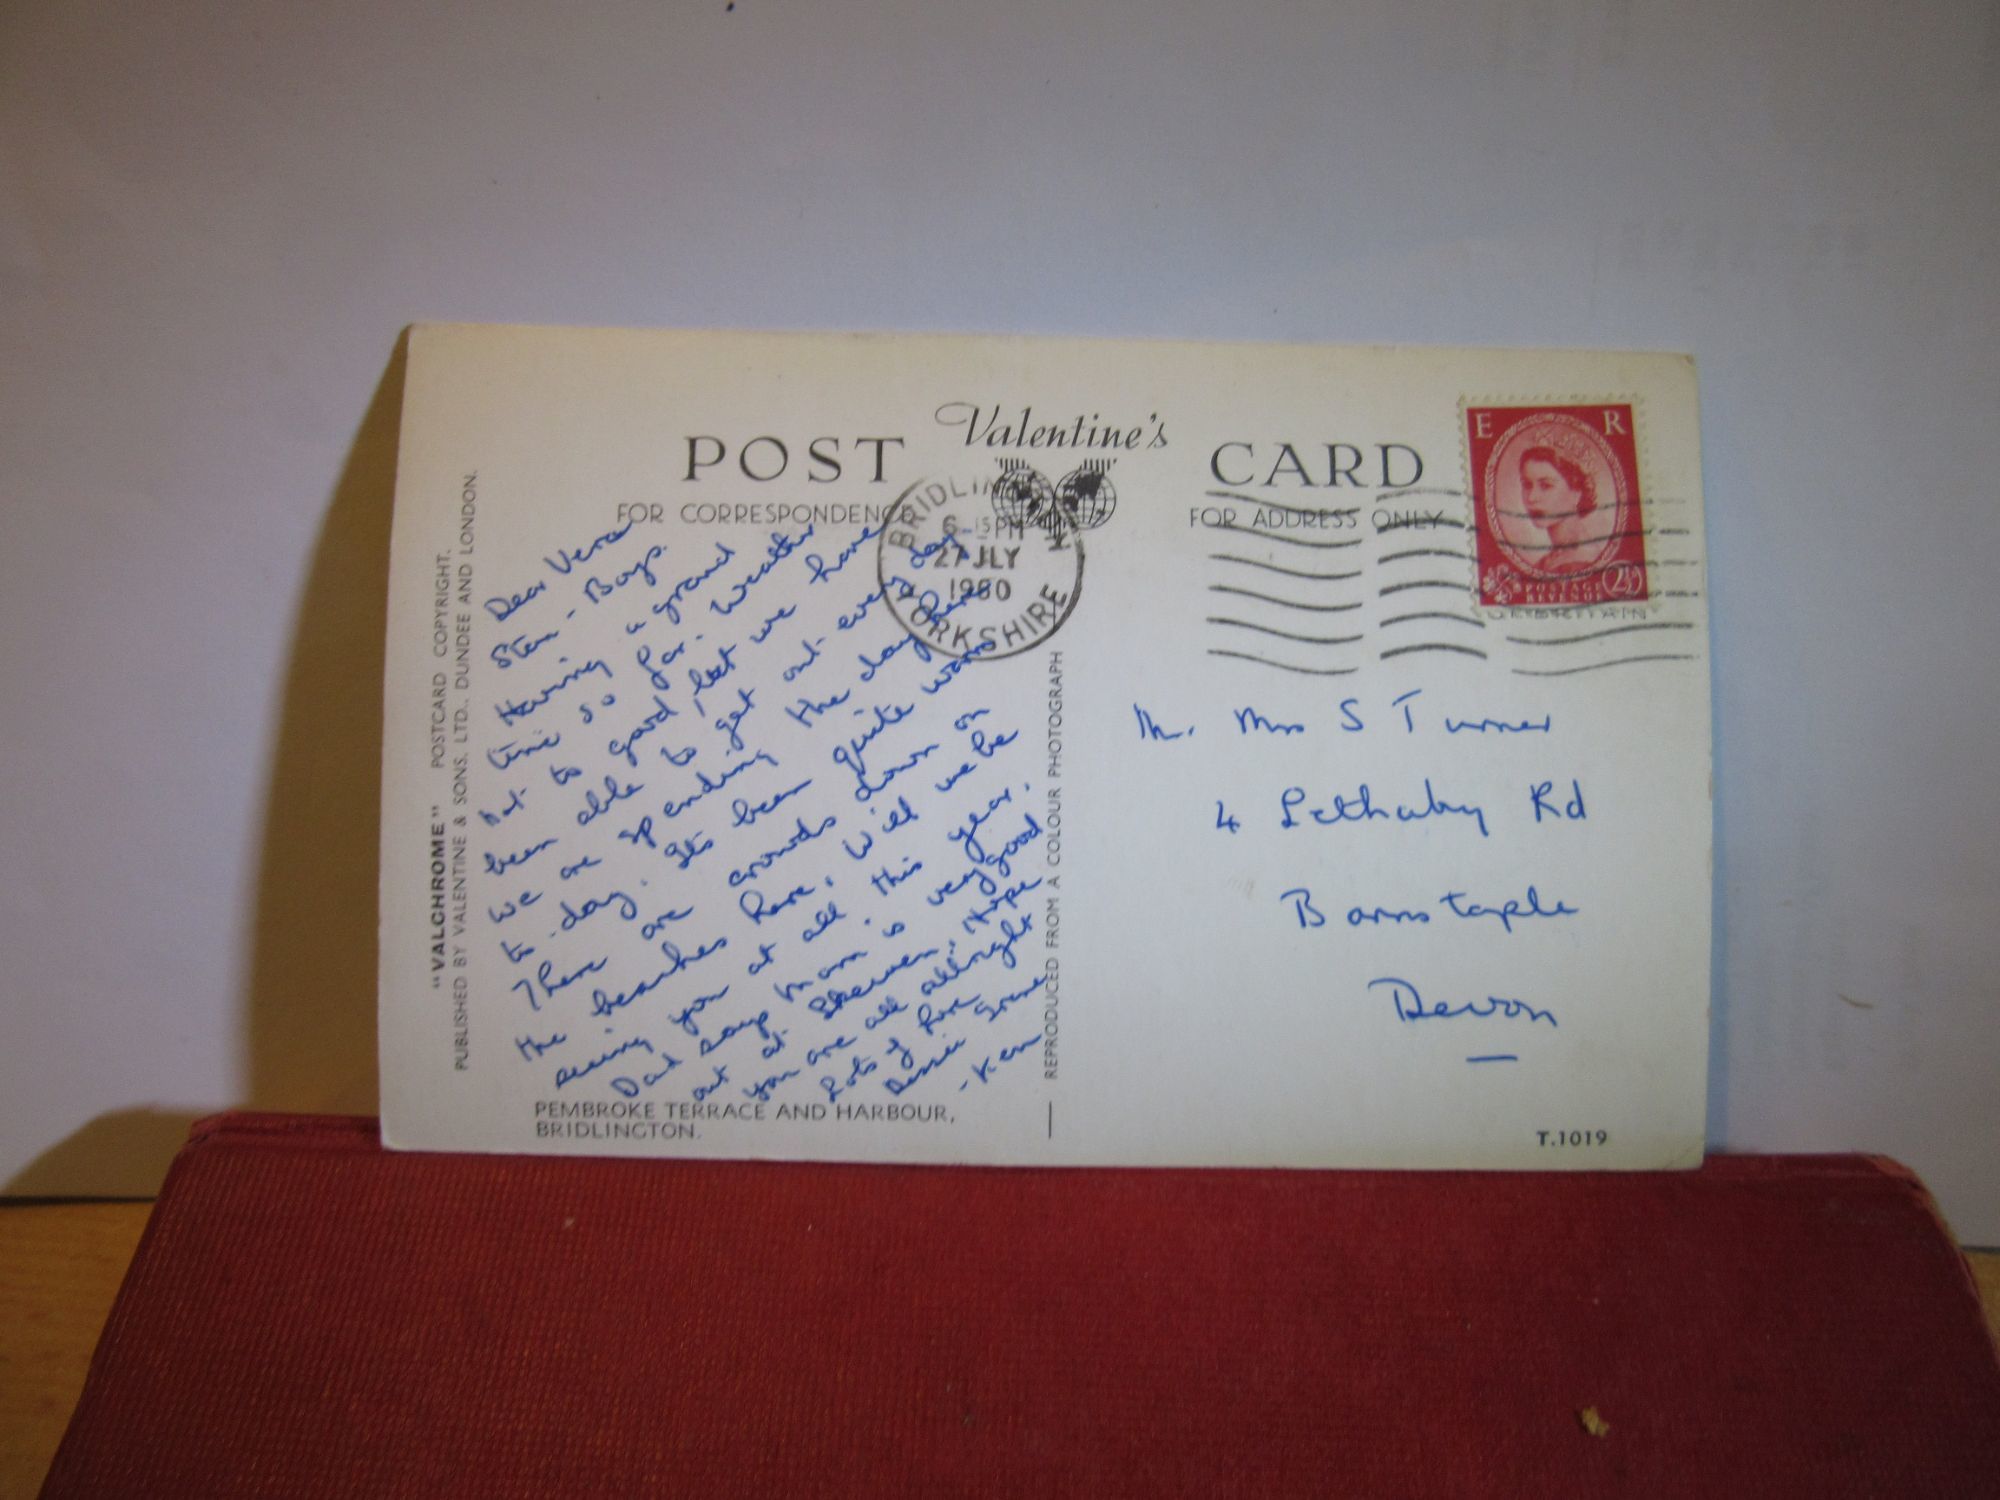 Valentine's
POST CARD
FOR CORRESPONDENCE
FOR ADDRESS ONLY
"VALCHROME" POSTCARD COPYRIGHT.
PUBLISHED BY VALENTINE & SONS, LTD., DUNDEE AND LONDON.
Dear Vera
Stan - Boys.
Having a grand
time so far. Weather
not to good, but we have
been able to get out every day
we are spending the day here
to-day. It's been quite warm
There are crowds down on
the beaches here. Will we be
seeing you at all this year.
Dad says Mam is very good
out at Hope
you are all allright
Lots of love
Grane
- Ken
PEMBROKE TERRACE AND HARBOUR,
BRIDLINGTON.
REPRODUCED FROM A COLOUR PHOTOGRAPH
BRIDLIN
6-15PM
27 JLY
1960
YORKSHIRE
E R
POSTAGE
REVENUE
2½D
Mr. Mrs S Turner
4 Lethaby Rd
Barnstaple
Devon
T.1019